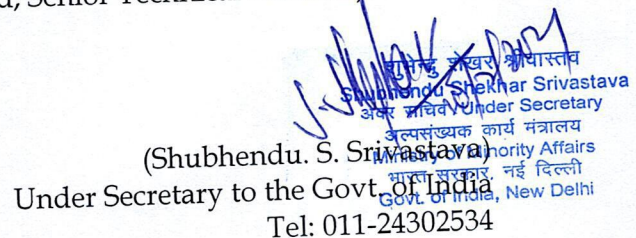 d, Senior Techni
शुभेन्दु शेखर श्रीवास्तव
Shubhendu Shekhar Srivastava
अवर सचिव/Under Secretary
अल्पसंख्यक कार्य मंत्रालय
Ministry of Minority Affairs
भारत सरकार, नई दिल्ली
Govt. of India, New Delhi
(Shubhendu. S. Srivastava)
Under Secretary to the Govt. of India
Tel: 011-24302534